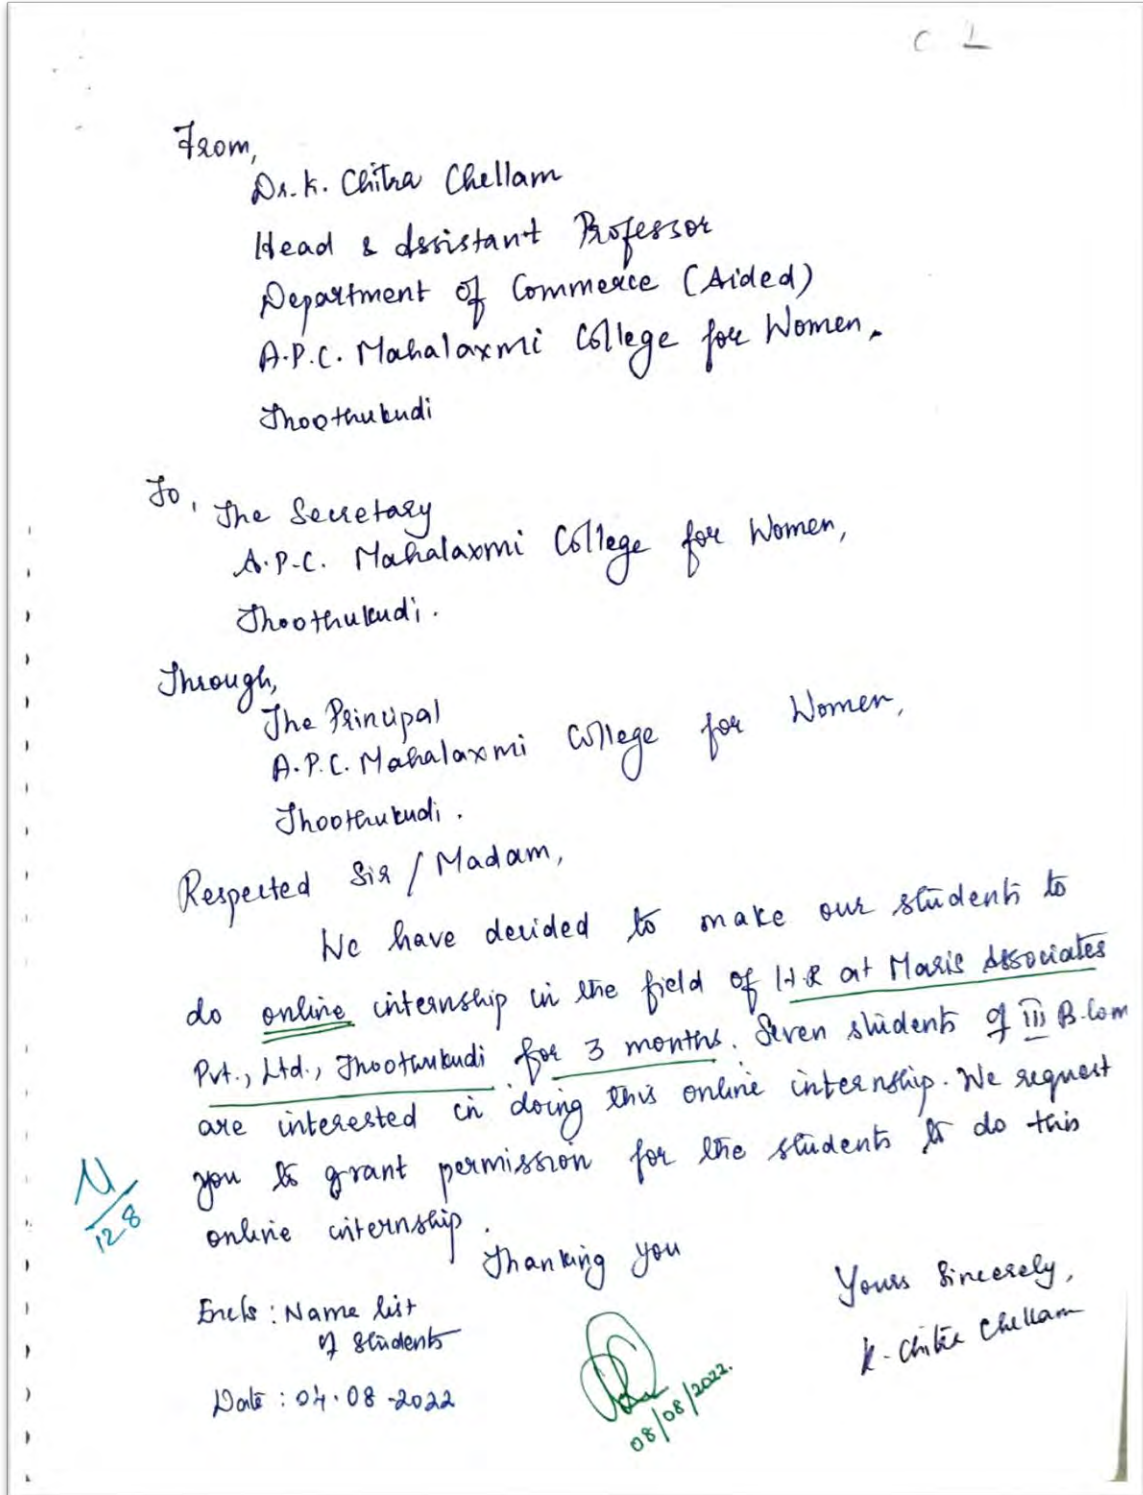 C 1
From,
Dr. K. Chitra Chellam
Head & Assistant Professor
Department of Commerce (Aided)
A.P.C. Mahalaxmi College for Women.
Thoothukudi
To,
The Secretary
A.P.C. Mahalaxmi College for Women,
Thoothukudi.
Through,
The Principal
A.P.C. Mahalaxmi College for Women,
Thoothukudi.
Respected Sir / Madam,
We have decided to make our students to
do online internship in the field of H.R at Maris Associates
Pvt., Ltd., Thoothukudi for 3 months. Seven students of III B.Com
are interested in doing this online internship. We request
you to grant permission for the students to do this
online internship.
12.8
Thanking you
Yours Sincerely,
K. Chitra Chellam
Encls : Name list
of Students
Date : 04.08.2022
08/08/2022.